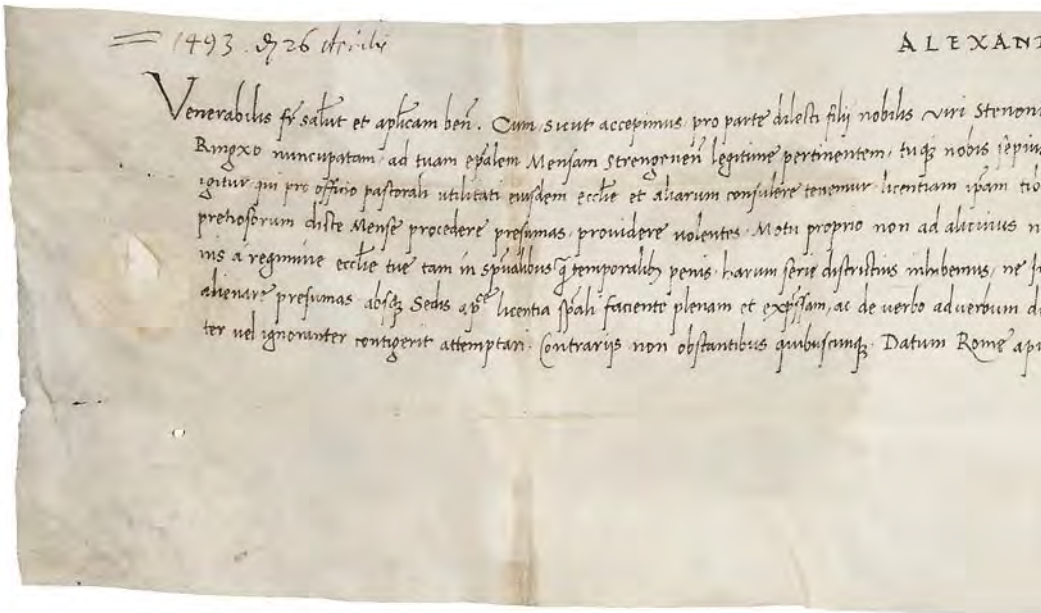 1493. 26 Aprilis
ALEXAN
Venerabilis fr̄ salut̄ et aplicam ben̄. Cum, sicut accepimus, pro parte dilecti filij nobilis viri Stenon
Ringxo nuncupatam, ad tuam ep̄alem Mensam Strengeneñ legitime pertinentem, tuq̨ nobis sepius
igitur qui pro officio pastorali utilitati eiusdem ecclīe et aliarum consulere tenemur licentiam ip̄am tib
pretiosorum dicte Mense procedere presumas, providere volentes, Motu proprio non ad alicuius
nis a regimine ecclīe tue tam in sp̄ualibus q̄ temporalib penis, harum serie districtius inhibemus, ne
alienare presumas absq̨ Sedis ap̄ce licentia sp̄ali faciente plenam et exp̄ssam, ac de verbo adverbum
ter vel ignoranter contigerit attemptari. Contrarijs non obstantibus quibuscunq̨. Datum Rome ap